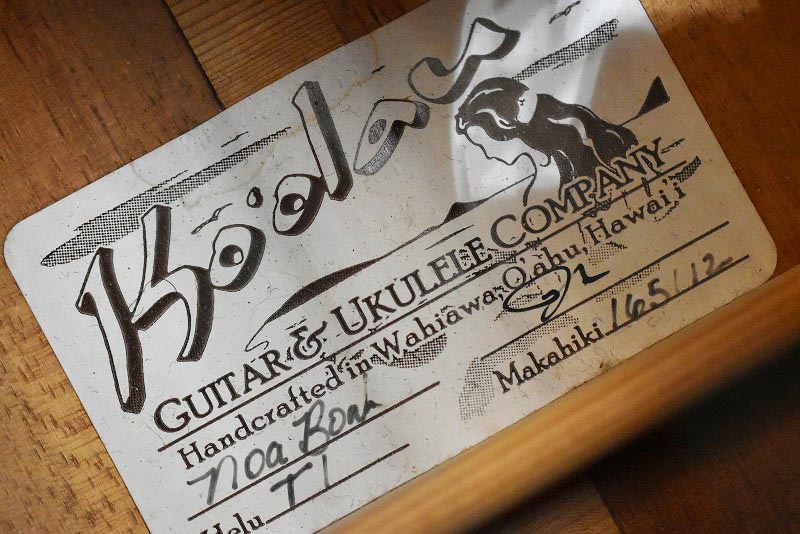 Ko'olau
GUITAR & UKULELE COMPANY
Handcrafted in Wahiawa, O'ahu, Hawai'i
noa Bonk
Makahiki 165/12
Helu T1